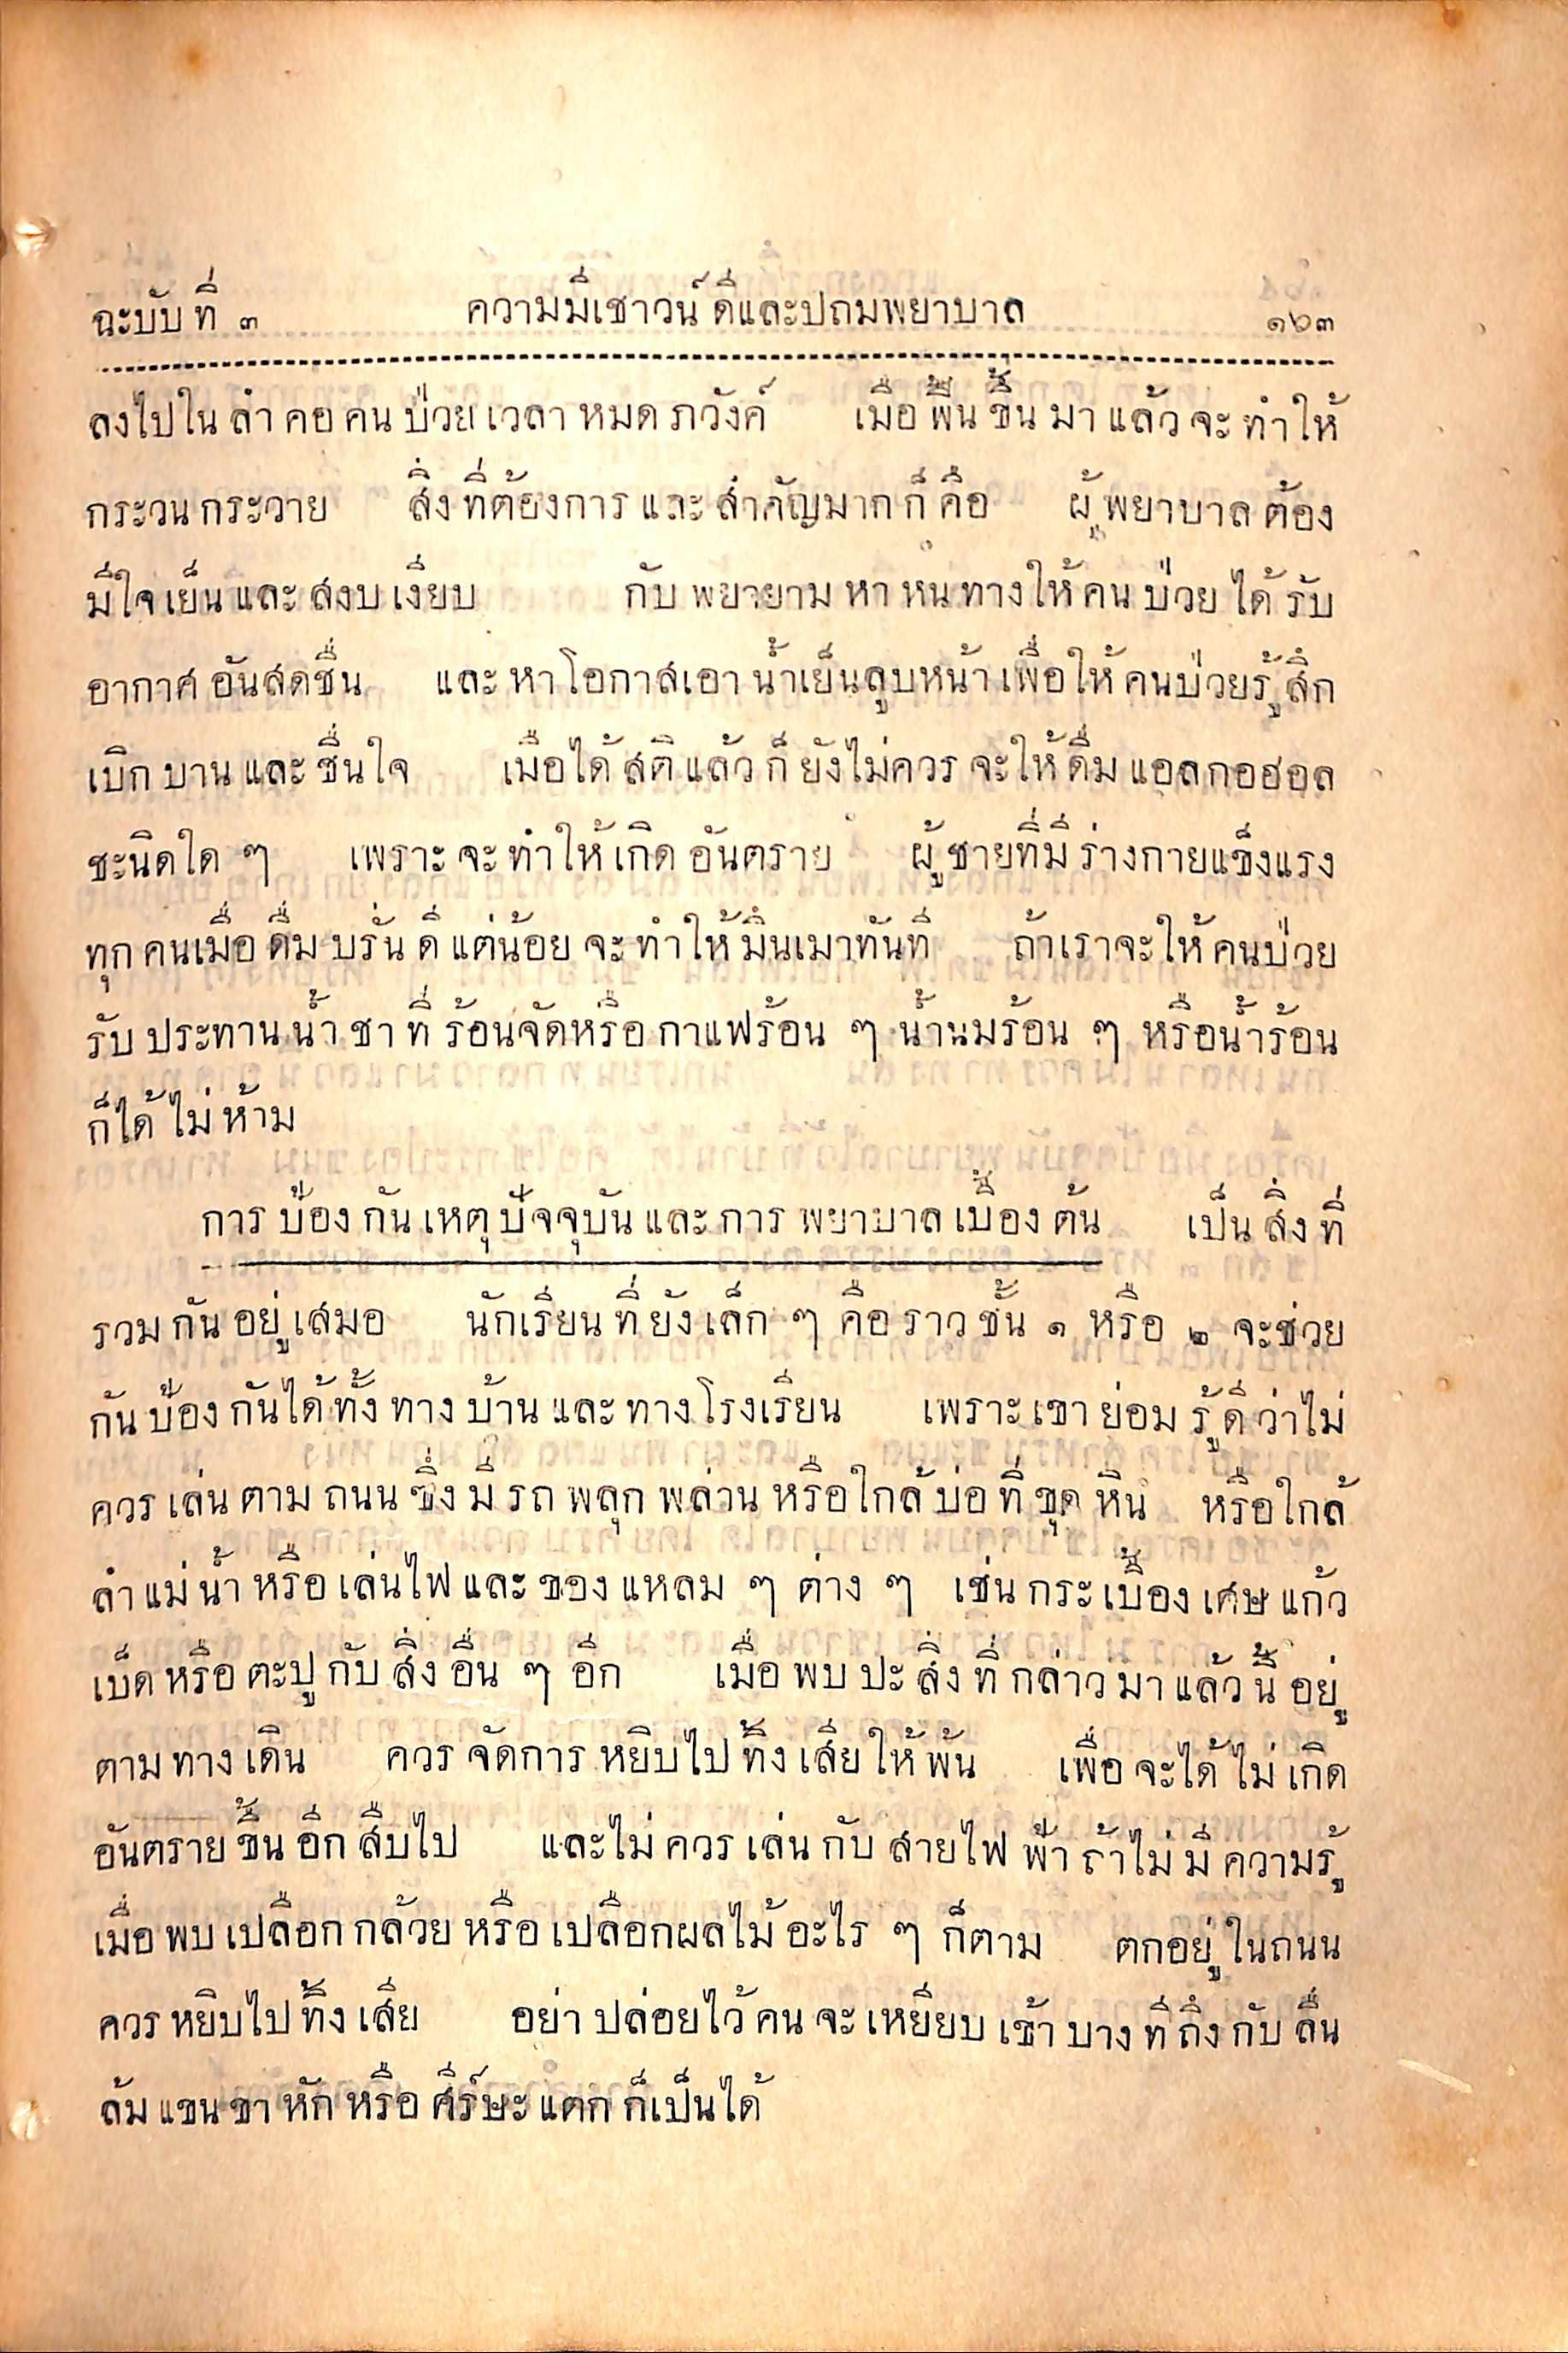 ฉะบับที่ ๓ ความมีเชาวน์ดีและปถมพยาบาล ๑๖๓
ลงไปในลำคอคนป่วยเวลาหมดภวังค์ เมื่อฟื้นขึ้นมาแล้วจะทำให้
กระวนกระวาย สิ่งที่ต้องการและสำคัญมากก็คือ ผู้พยาบาลต้อง
มีใจเย็นและสงบเงียบ กับพยายามหาหนทางให้คนป่วยได้รับ
อากาศอันสดชื่น และหาโอกาสเอาน้ำเย็นลูบหน้าเพื่อให้คนป่วยรู้สึก
เบิกบานและชื่นใจ เมื่อได้สติแล้วก็ยังไม่ควรจะให้ดื่มแอลกอฮอล
ชะนิดใด ๆ เพราะจะทำให้เกิดอันตราย ผู้ชายที่มีร่างกายแข็งแรง
ทุกคนเมื่อดื่มบรั่นดีแต่น้อยจะทำให้มึนเมาทันที ถ้าเราจะให้คนป่วย
รับประทานน้ำชาที่ร้อนจัดหรือกาแฟร้อน ๆ น้ำนมร้อน ๆ หรือน้ำร้อน
ก็ได้ไม่ห้าม
การป้องกันเหตุปัจจุบันและการพยาบาลเบื้องต้น เป็นสิ่งที่
รวมกันอยู่เสมอ นักเรียนที่ยังเล็ก ๆ คือราวชั้น ๑ หรือ ๒ จะช่วย
กันป้องกันได้ทั้งทางบ้านและทางโรงเรียน เพราะเขาย่อมรู้ดีว่าไม่
ควรเล่นตามถนนซึ่งมีรถพลุกพล่านหรือใกล้บ่อที่ขุดหิน หรือใกล้
ลำแม่น้ำหรือเล่นไฟและของแหลม ๆ ต่าง ๆ เช่นกระเบื้องเศษแก้ว
เบ็ดหรือตะปูกับสิ่งอื่น ๆ อีก เมื่อพบปะสิ่งที่กล่าวมาแล้วนี้อยู่
ตามทางเดิน ควรจัดการหยิบไปทิ้งเสียให้พ้น เพื่อจะได้ไม่เกิด
อันตรายขึ้นอีกสืบไป และไม่ควรเล่นกับสายไฟฟ้าถ้าไม่มีความรู้
เมื่อพบเปลือกกล้วยหรือเปลือกผลไม้อะไร ๆ ก็ตาม ตกอยู่ในถนน
ควรหยิบไปทิ้งเสีย อย่าปล่อยไว้คนจะเหยียบเข้าบางทีถึงกับลื่น
ล้มแขนขาหักหรือศีร์ษะแตกก็เป็นได้